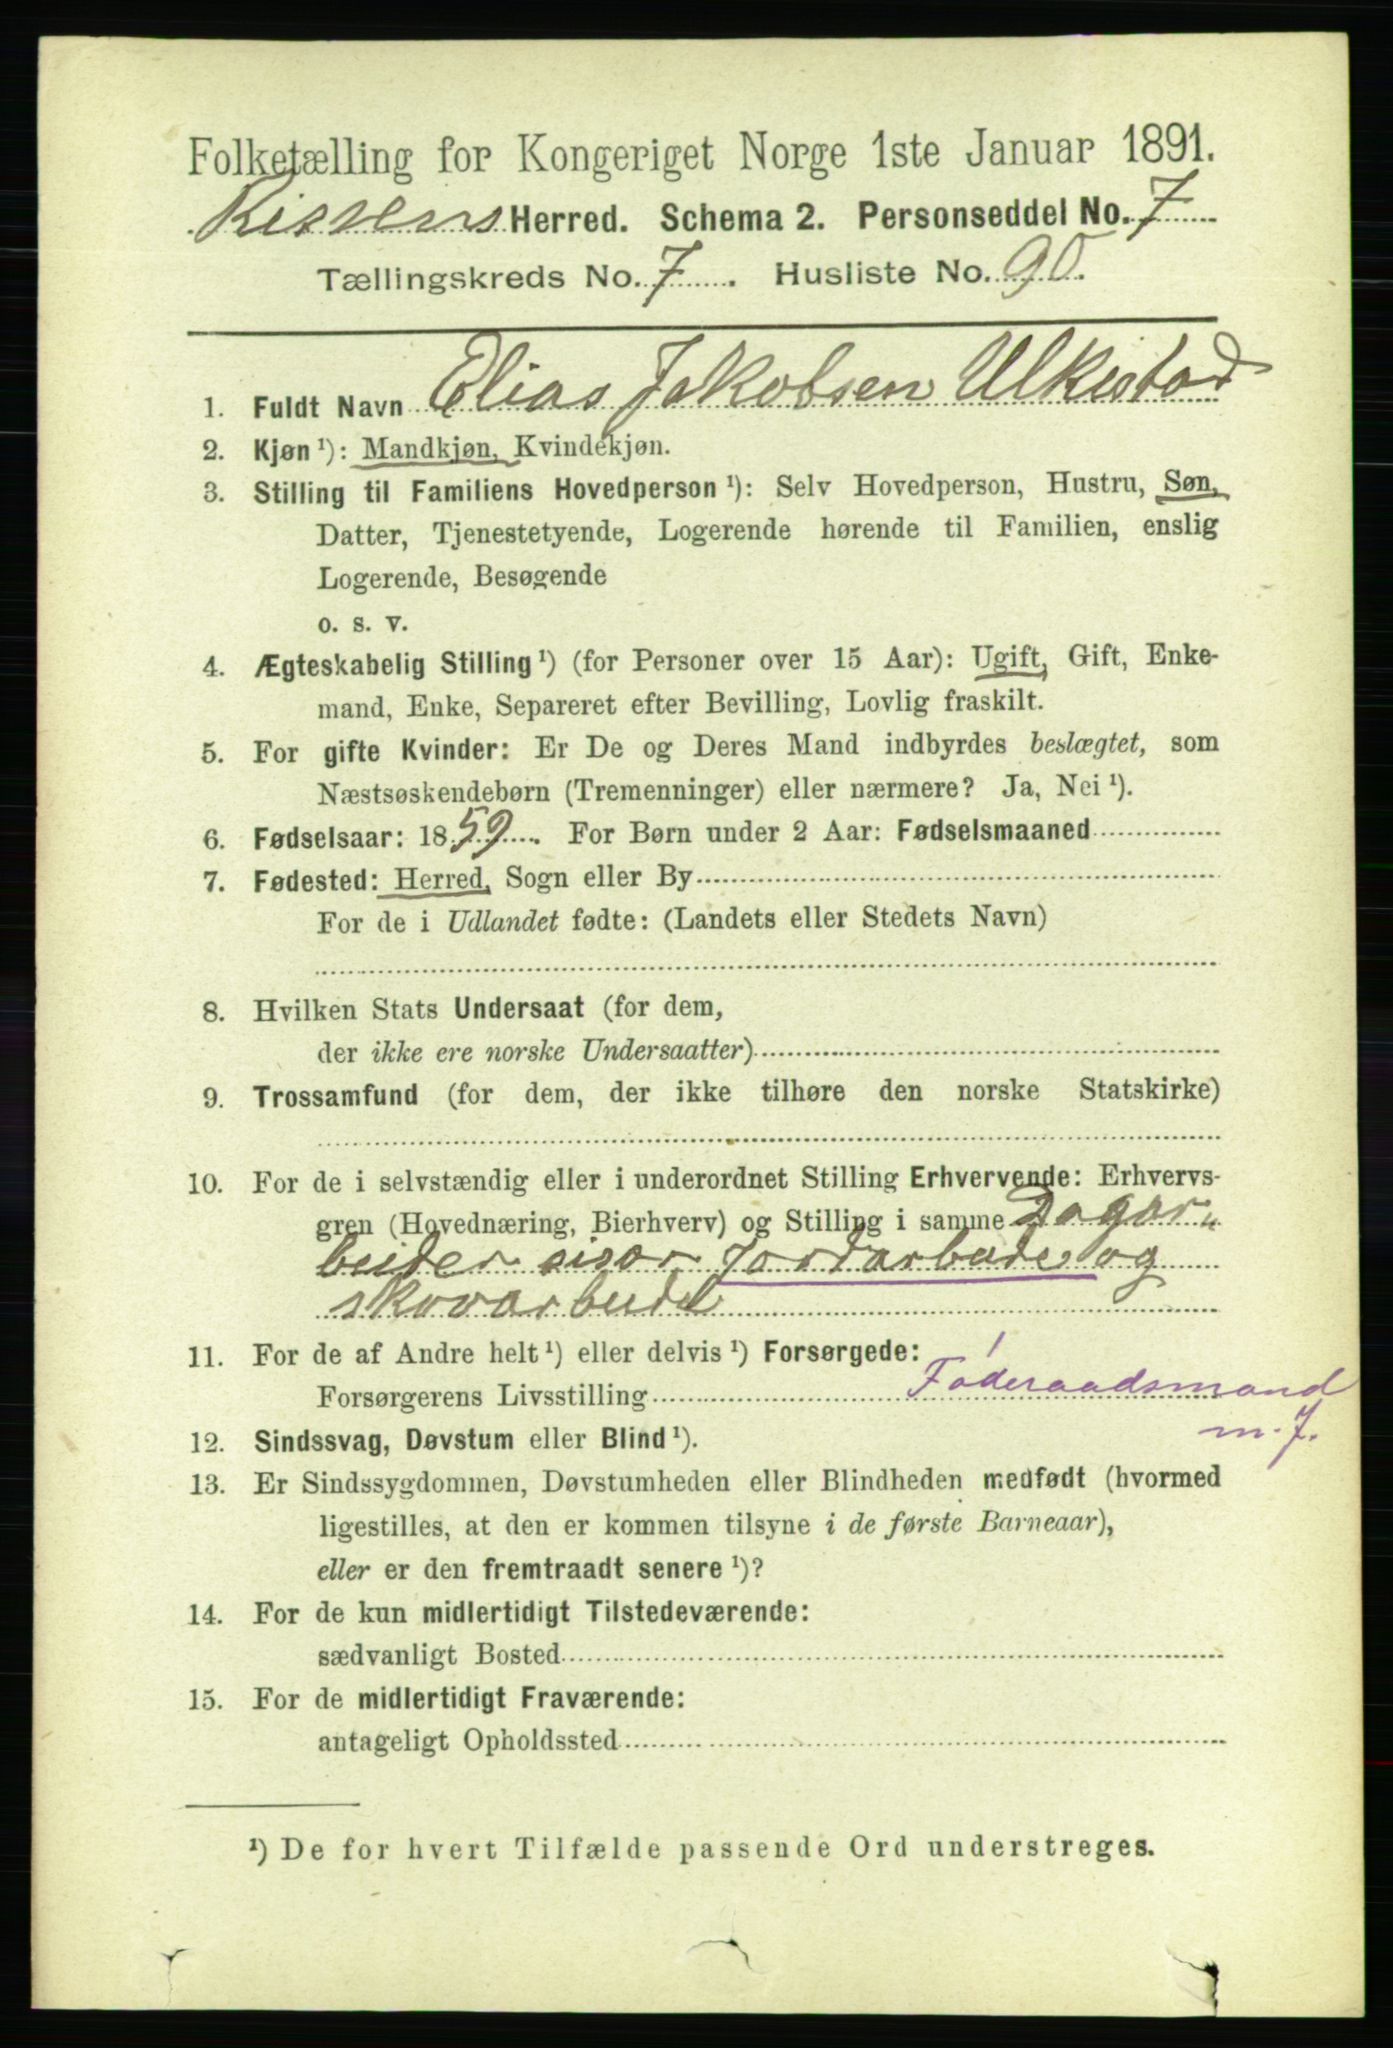 Folketælling for Kongeriget Norge 1ste Januar 1891.
Rissens Herred. Schema 2. Personseddel No. 7
Tællingskreds No. 7. Husliste No. 90.
1. Fuldt Navn Elias Jakobsen Ulkestad
2. Kjøn ¹): Mandkjøn, Kvindekjøn.
3. Stilling til Familiens Hovedperson ¹): Selv Hovedperson, Hustru, Søn,
Datter, Tjenestetyende, Logerende hørende til Familien, enslig
Logerende, Besøgende
o. s. v.
4. Ægteskabelig Stilling ¹) (for Personer over 15 Aar): Ugift, Gift, Enke-
mand, Enke, Separeret efter Bevilling, Lovlig fraskilt.
5. For gifte Kvinder: Er De og Deres Mand indbyrdes beslægtet, som
Næstsøskendebørn (Tremenninger) eller nærmere? Ja, Nei ¹).
6. Fødselsaar: 1859. For Børn under 2 Aar: Fødselsmaaned
7. Fødested: Herred, Sogn eller By
For de i Udlandet fødte: (Landets eller Stedets Navn)
8. Hvilken Stats Undersaat (for dem,
der ikke ere norske Undersaatter)
9. Trossamfund (for dem, der ikke tilhøre den norske Statskirke)
10. For de i selvstændig eller i underordnet Stilling Erhvervende: Erhvervs-
gren (Hovednæring, Bierhverv) og Stilling i samme Dagar„
beider jordarbeide og
skovarbeide
11. For de af Andre helt ¹) eller delvis ¹) Forsørgede:
Forsørgerens Livsstilling Føderaadsmand
m. J.
12. Sindssvag, Døvstum eller Blind ¹).
13. Er Sindssygdommen, Døvstumheden eller Blindheden medfødt (hvormed
ligestilles, at den er kommen tilsyne i de første Barneaar),
eller er den fremtraadt senere ¹)?
14. For de kun midlertidigt Tilstedeværende:
sædvanligt Bosted
15. For de midlertidigt Fraværende:
antageligt Opholdssted
¹) De for hvert Tilfælde passende Ord understreges.